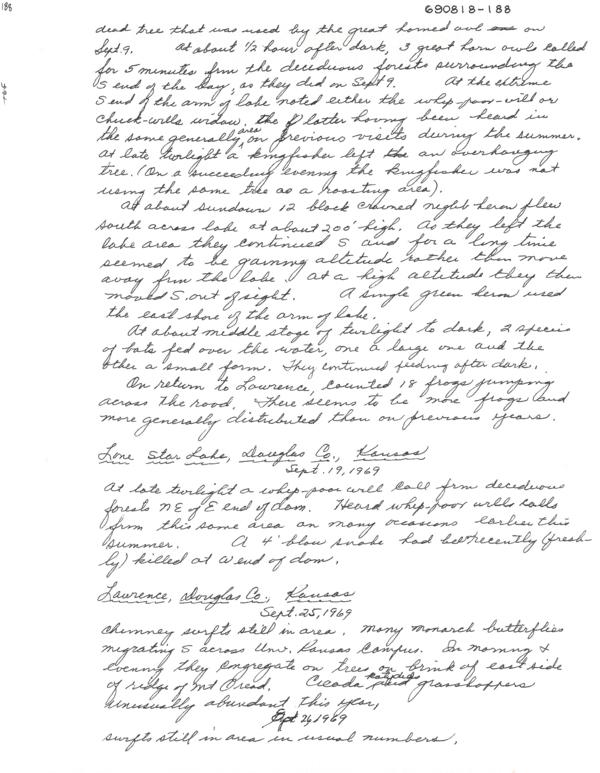 188
690818-188
dead tree that was used by the great horned owl on
Sept 9. At about 1/2 hour after dark, 3 great horn owls called
for 5 minutes frm the deciduous forests surrounding the
S end of the bay, as they did on Sept 9. At the extreme
S end of the arm of lake noted either the whip-poor-will or
chuck-wills widow, the latter having been heard in
the same generally area on previous visits during the summer.
At late twilight a kingfisher left an overhanging
tree. (On a succeeding evening the kingfisher was not
using the same tree as a roosting area).
At about sundown 12 black crowned night heron flew
south across lake at about 200' high. As they left the
lake area they continued S and for a long time
seemed to be gaining altitude rather then move
away frm the lake. At a high altitude they then
moved S. out of sight. A single green heron used
the east shore of the arm of lake.
At about middle stage of twilight to dark, 2 species
of bats fed over the water, one a large one and the
other a small form. They continued feeding after dark.
On return to Lawrence, counted 18 frogs jumping
across the road. There seems to be more frogs and
more generally distributed than on previous years.
Lone Star Lake, Douglas Co., Kansas
Sept. 19, 1969
At late twilight a whip-poor will call frm deciduous
forests NE of E end of dam. Heard whip-poor wills calls
from this same area on many occasions earlier this
summer. A 4' blow snake had been recently (fresh-
ly) killed at W end of dam.
Lawrence, Douglas Co., Kansas
Sept. 25, 1969
Chimney swifts still in area. Many monarch butterflies
migrating S across Univ. Kansas Campus. In morning &
evening they congregate on trees on brink of east side
of ridge of Mt Oread. Cicada katydids and grasshoppers
unusually abundant this year.
Sept 26, 1969
swifts still in area in usual numbers.